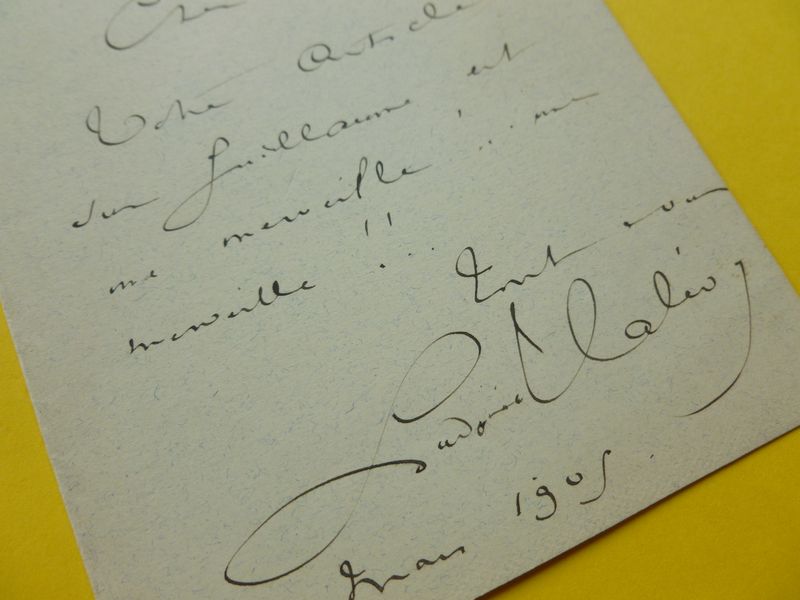 Cher
Votre article
sur Guillaume est
une merveille ... une
merveille !! ...
Tout à vous
Ludovic Halévy
Mars 1905.